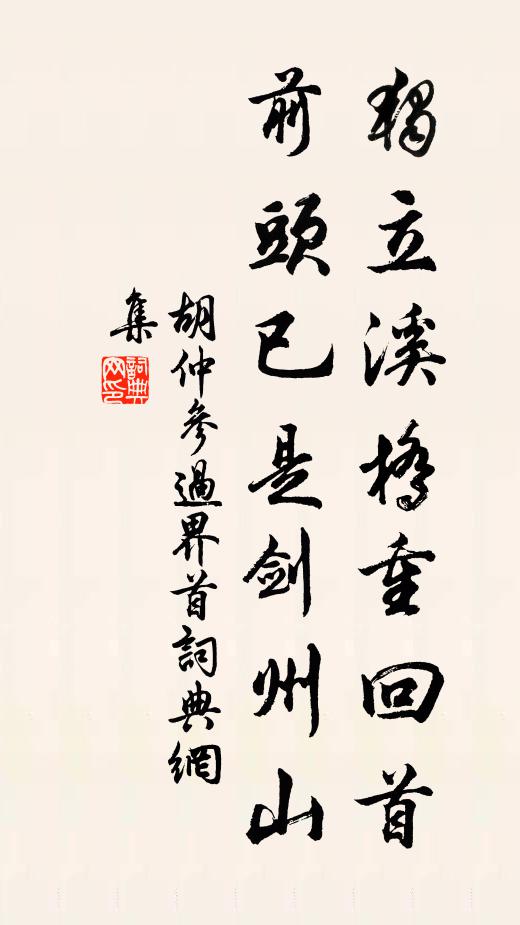 獨立溪橋重回首
前頭已是剑州山
胡仲參過界首詞典網
集
詞典网印